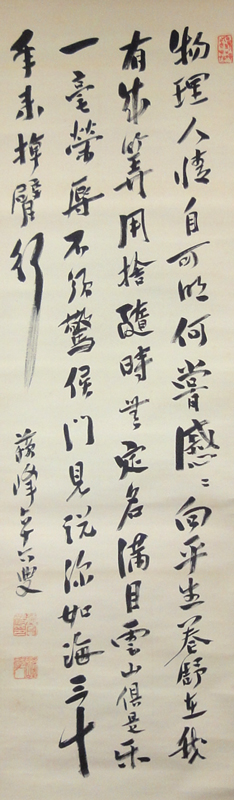 物理人情自可明何嘗慼〻向平生卷舒在我
有成算用捨隨時無定名滿目雲山俱是樂
一毫榮辱不須驚侯門見說深如海三十
年來掉臂行
蘇峰叟